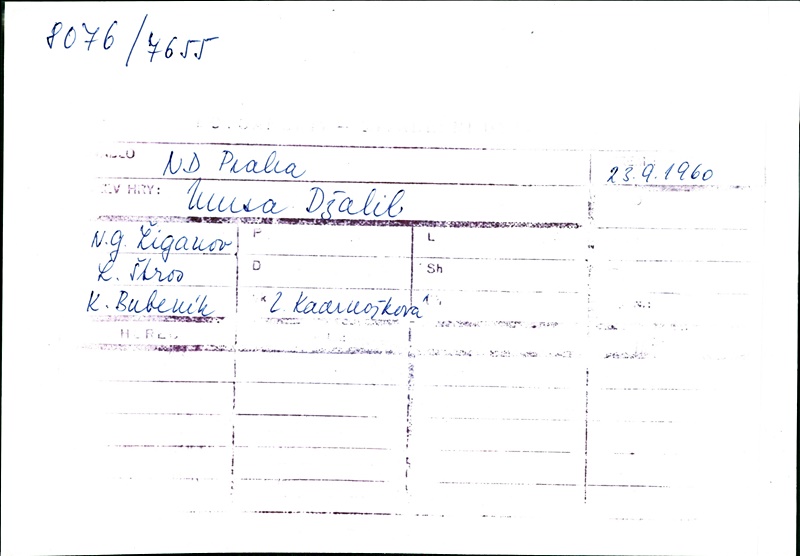 8076/7655
ND Praha 23.9.1960
EV HRY: Musa Džalil
N.G. Žiganov P L
L. Štros D Sh
K. Bubeník "Z. Kadrnožková"
HEREC